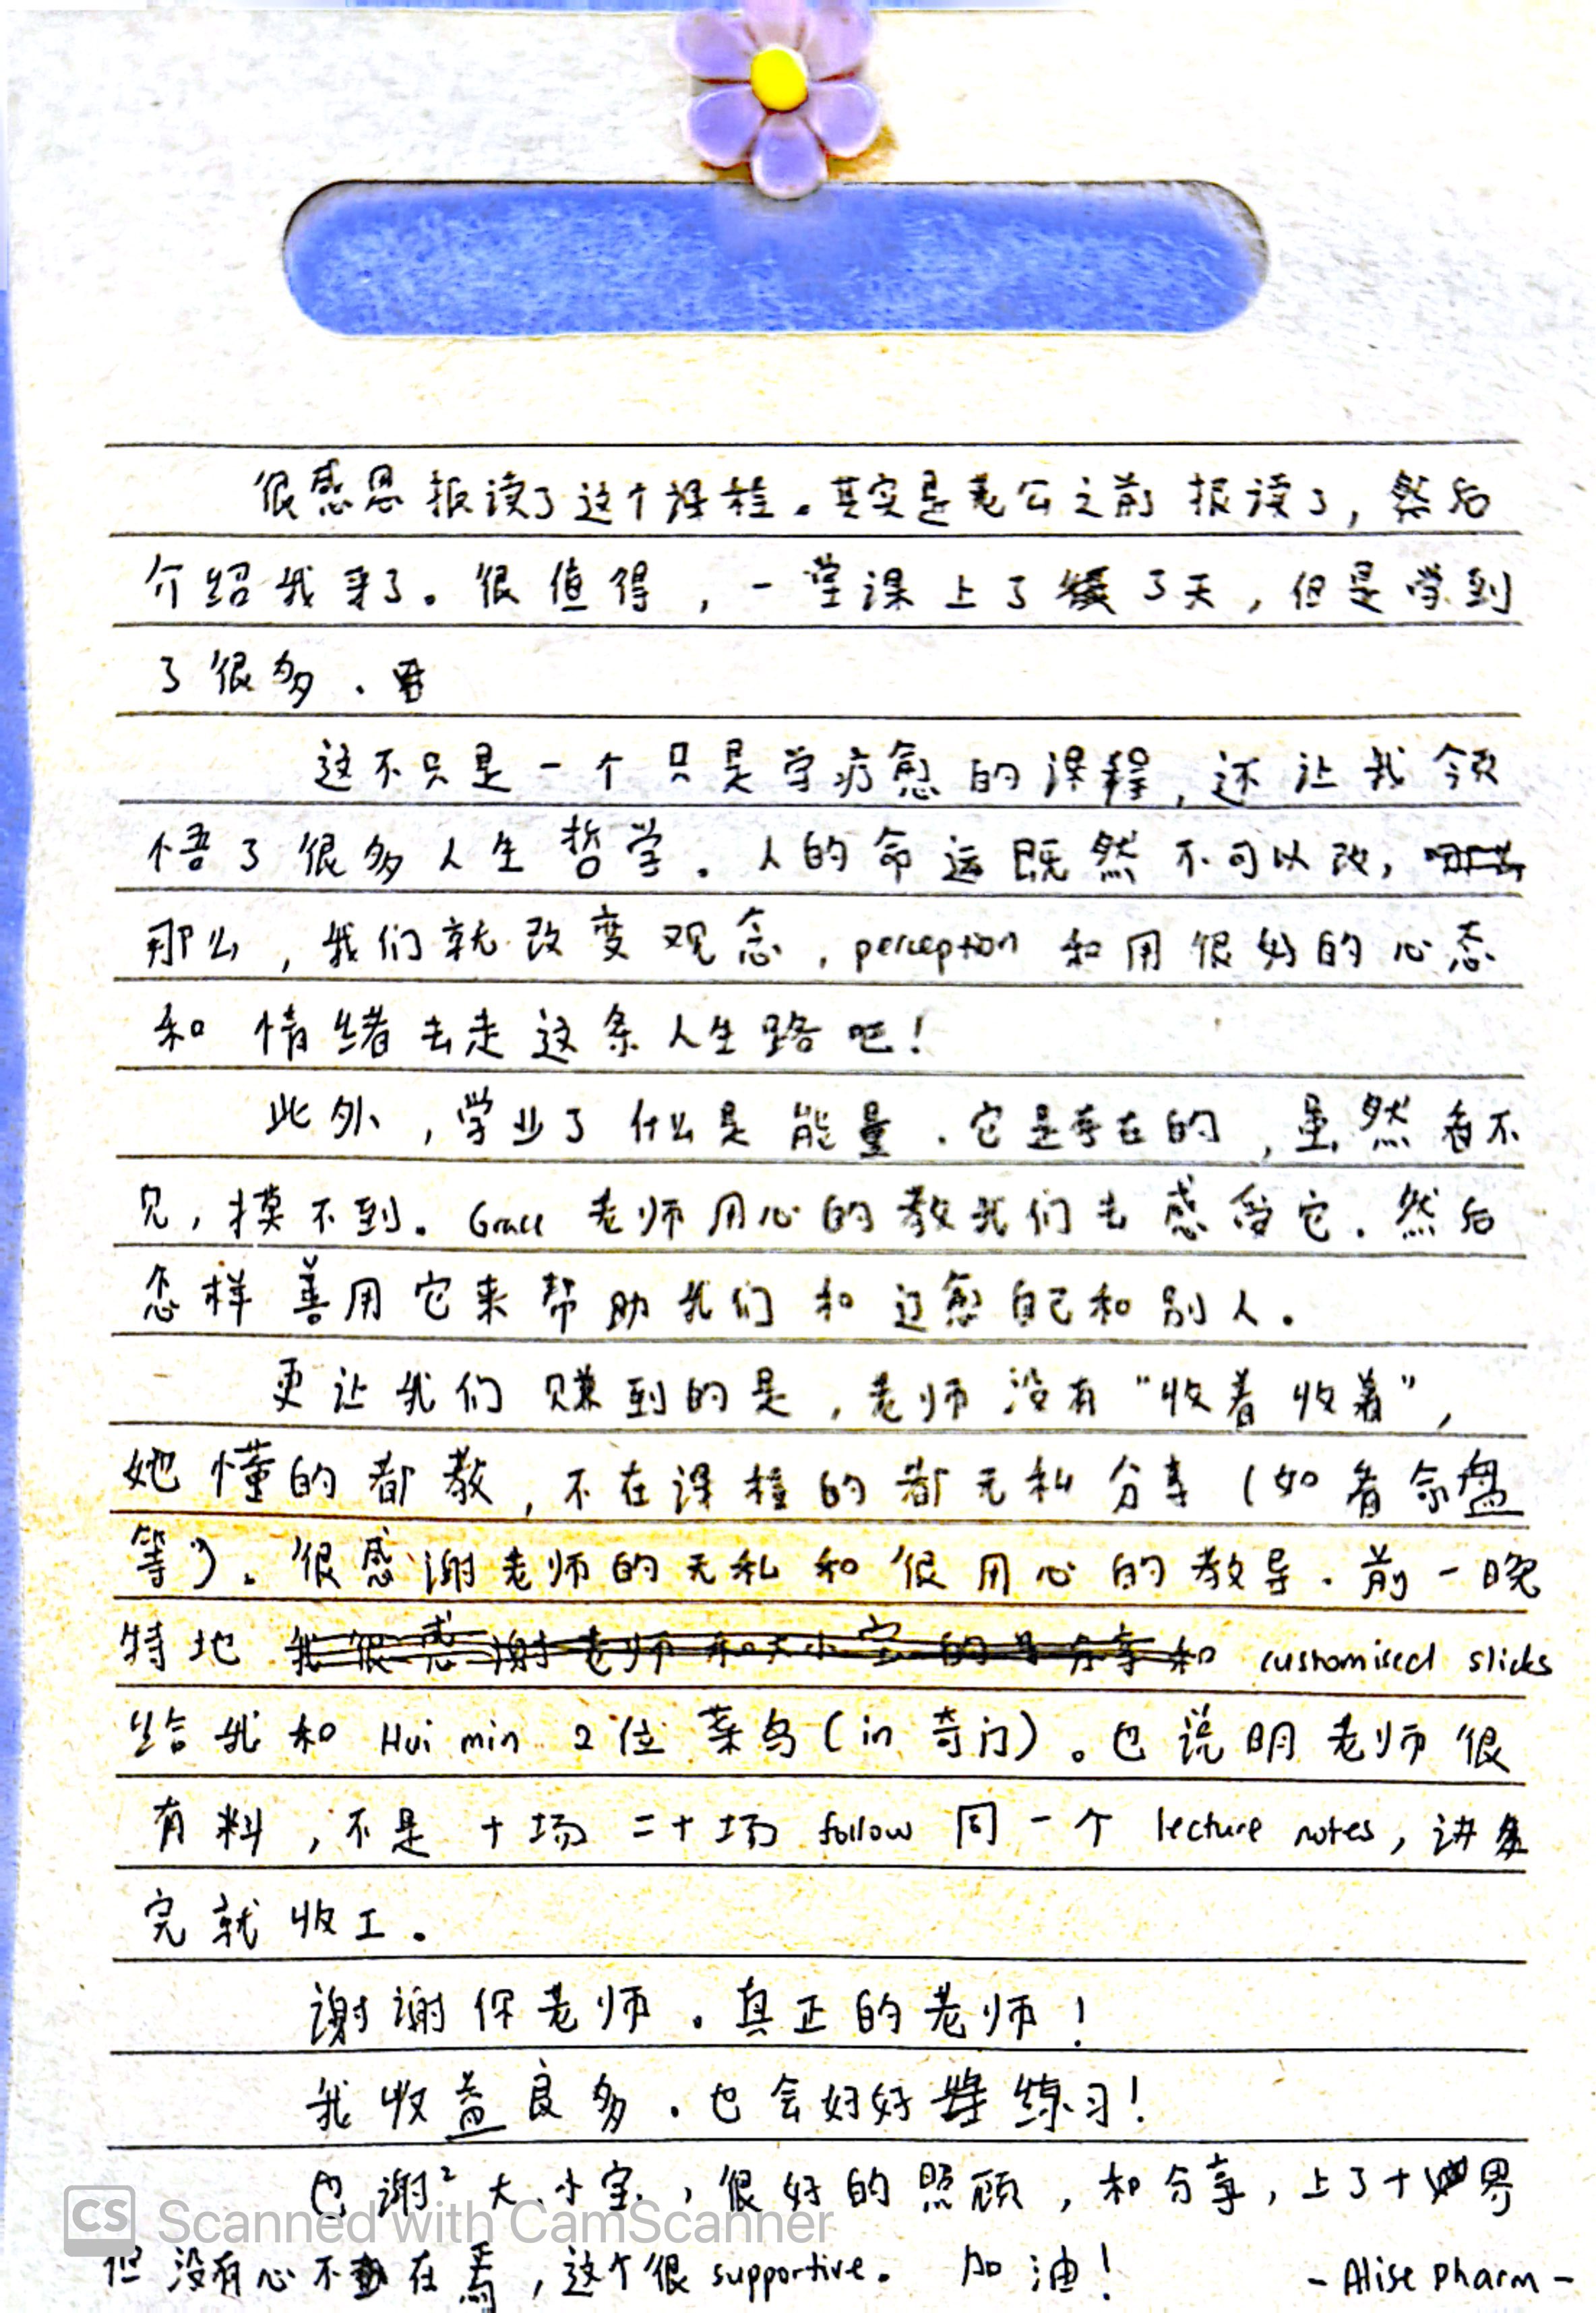 很感恩报读了这个课程。其实是老公之前报读了，然后
介绍我来了。很值得，一堂课上了 了天，但是学到
了很多．
这不只是一个只是学疗愈的课程，还让我领
悟了很多人生哲学．人的命运既然不可以改，
那么，我们就改变观念，perception 和用很好的心态
和情绪去走这条人生路吧！
此外，学业了什么是能量．它是存在的，虽然看不
见，摸不到。Grace 老师用心的教我们去感受它．然后
怎样善用它来帮助我们和 愈自己和别人．
更让我们赚到的是，老师没有“收着收着”，
她懂的都教，不在课程的都无私分享（如看命盘
等）。很感谢老师的无私和很用心的教导．前一晚
特地 我很感谢老师和大小宝的 分享和 customised slides
给我和 Hui min 2位菜鸟（in 奇门）。也说明老师很
有料，不是十场二十场 follow 同一个 lecture notes，讲
完就收工．
谢谢你老师．真正的老师！
我收益良多．也会好好 练习！
也谢² 大、小宝，很好的照顾，和分享，上了十 界
但没有心不 在焉，这个很 supportive．加油！ - Alise Pharm -
CS Scanned with CamScanner